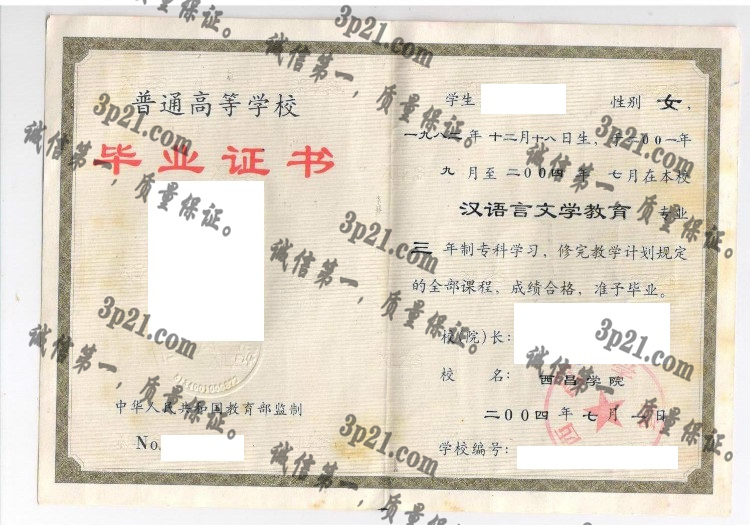 普通高等学校
毕业证书
中华人民共和国教育部监制
No.
学生 性别 女，
一九八二年 十二月十八日生，于二〇〇一年
九 月至 二〇〇四 年 七月在本校
汉语言文学教育 专业
三 年制专科学习，修完教学计划规定
的全部课程，成绩合格，准予毕业。
校(院)长：
校 名：西昌学院
二〇〇四 年 七月 日
学校编号：
3p21.com
诚信第一，质量保证。
3p21.com
诚信第一，质量保证。
3p21.com
诚信第一，质量保证。
3p21.com
诚信第一，质量保证。
3p21.com
诚信第一，质量保证。
3p21.com
诚信第一，质量保证。
3p21.com
诚信第一，质量保证。